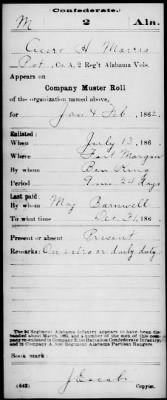 Confederate.
M 2 Ala.
Cicero A Morris
Pvt, Co. A, 2 Reg't Alabama Vols.
Appears on
Company Muster Roll
of the organization named above,
for Jan & Feb, 1862.
Enlisted:
When July 13, 186
Where Fort Morgan
By whom Ben King
Period 9 mo 24 days
Last paid:
By whom Maj Barnwell
To what time Dec 31, 186
Present or absent Present
Remarks: On extra duty
Book mark:
(642) Copyist.